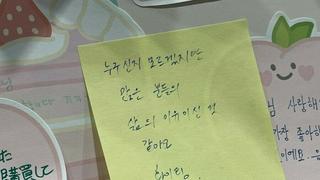 누구신지 모르겠지만
많은 분들의
삶의 이유이신 것
같아요
화이팅
님
님 사랑해
가장 좋아하
이에요
た
購買して